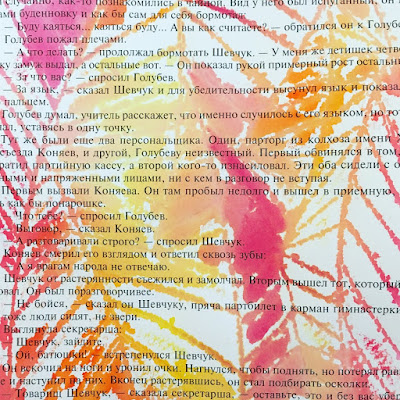 случайно, как-то познакомились в чайной. Вид у него был испуганный, он
буденновку и как бы сам для себя бормотал
— Буду каяться... каяться буду... А вы как считаете? — обратился он к Голубе
Голубев пожал плечами.
— А что делать? — продолжал бормотать Шевчук. — У меня же детишек четве
ку замуж выдал, а остальные вот. — Он показал рукой примерный рост остальны
За что вас? — спросил Голубев.
За язык, — сказал Шевчук и для убедительности высунул язык и показа
пальцем.
Голубев думал, учитель расскажет, что именно случилось с его языком, но тот
чал, уставясь в одну точку.
Тут же были еще два персональщика. Один, парторг из колхоза имени
Коняев, и другой, Голубеву неизвестный. Первый обвинялся в том,
ратил партийную кассу, а второй кого-то изнасиловал. Эти оба сидели с о
ными и напряженными лицами, ни с кем в разговор не вступая.
Первым вызвали Коняева. Он там пробыл недолго и вышел в приемную
ь как бы понарошке.
Что тебе? — спросил Голубев.
Выговор, — сказал Коняев.
А разговаривали строго? — спросил Шевчук.
Коняев смерил его взглядом и ответил сквозь зубы:
А я врагам народа не отвечаю.
Шевчук от растерянности съежился и замолчал. Вторым вышел тот, который
овал. Он был поразговорчивее.
Не бойся, — сказал он Шевчуку, пряча партбилет в карман гимнастерки
тоже люди сидят, не звери.
Выглянула секретарша:
Шевчук, зайдите.
Ой, батюшки! — встрепенулся Шевчук.
Он вскочил на ноги и уронил очки. Нагнулся, чтобы поднять, но потерял рав
е и наступил на них. Вконец растерявшись, он стал подбирать осколки.
Товарищ Шевчук, — сказала секретарша, — оставьте, это и без вас убер